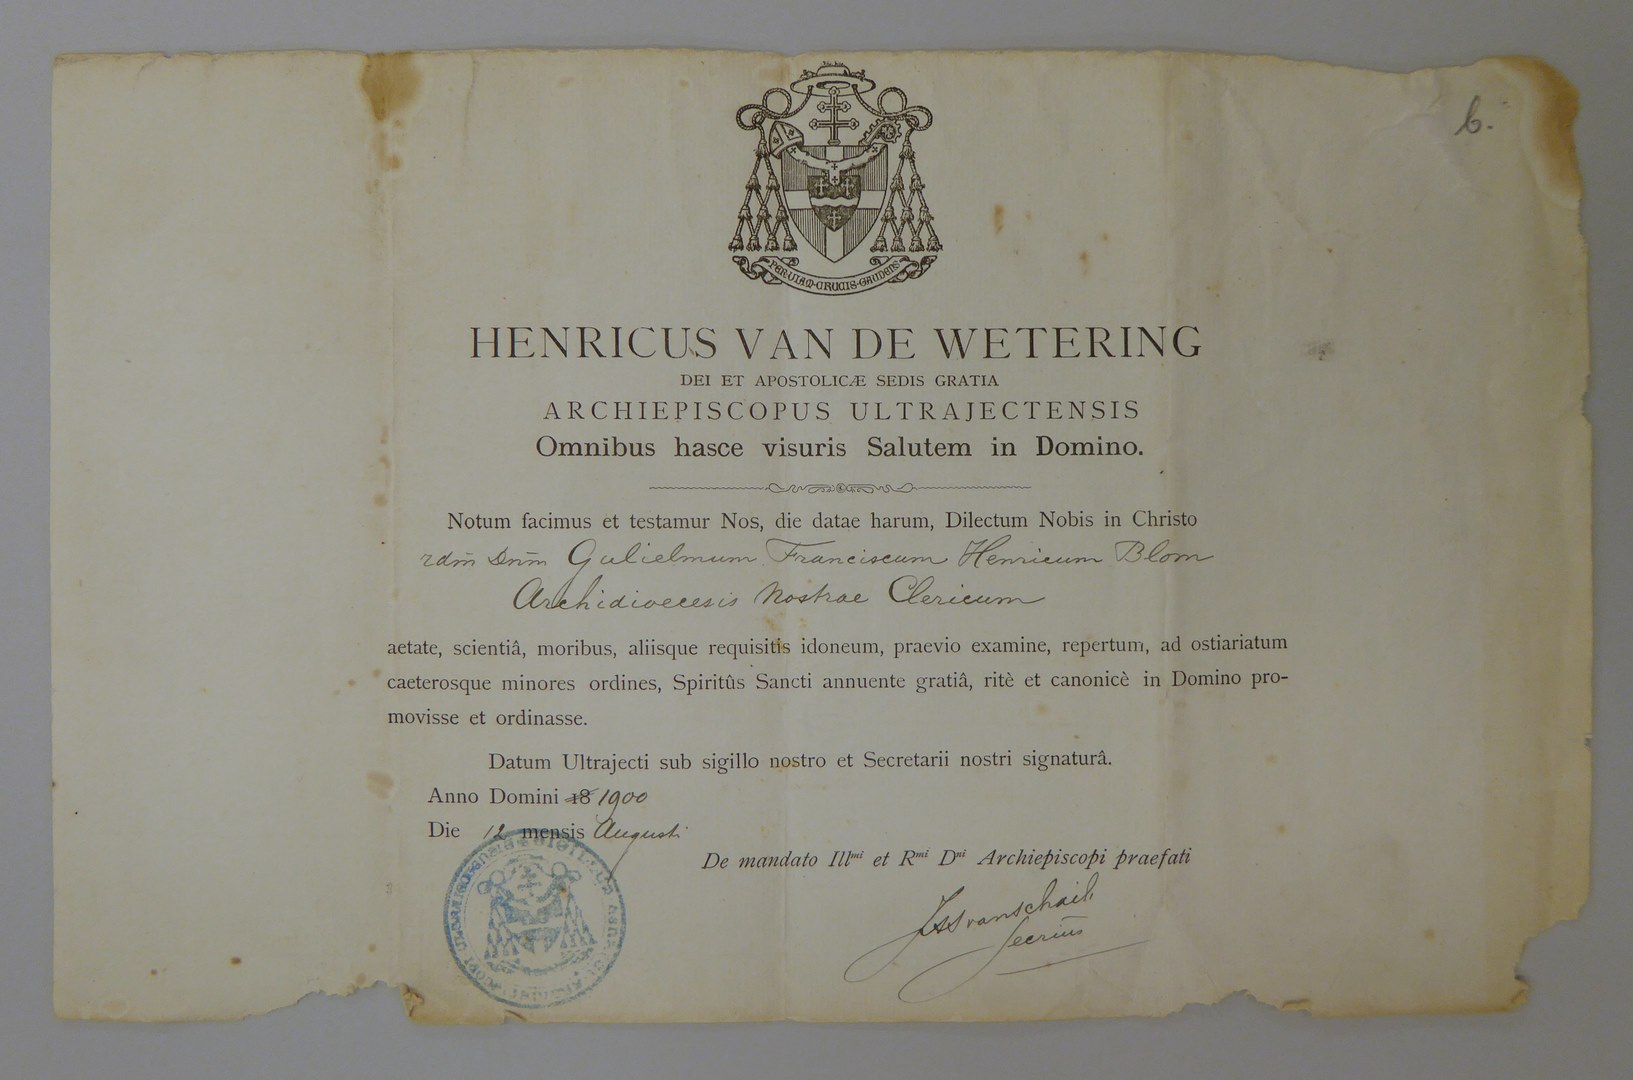 b.
PER·VIAM·CRUCIS·GAUDENS
HENRICUS VAN DE WETERING
DEI ET APOSTOLICÆ SEDIS GRATIA
ARCHIEPISCOPUS ULTRAJECTENSIS
Omnibus hasce visuris Salutem in Domino.
Notum facimus et testamur Nos, die datae harum, Dilectum Nobis in Christo
rdm̄ Dnm̄ Gulielmum Franciscum Henricum Blom
Archidioecesis Nostrae Clericum
aetate, scientiâ, moribus, aliisque requisitis idoneum, praevio examine, repertum, ad ostiariatum
caeterosque minores ordines, Spiritûs Sancti annuente gratiâ, ritè et canonicè in Domino pro-
movisse et ordinasse.
Datum Ultrajecti sub sigillo nostro et Secretarii nostri signaturâ.
Anno Domini 18 1900
Die 12 mensis Augusti
De mandato Illmi et Rmi Dni Archiepiscopi praefati
van Schaik
Secrius